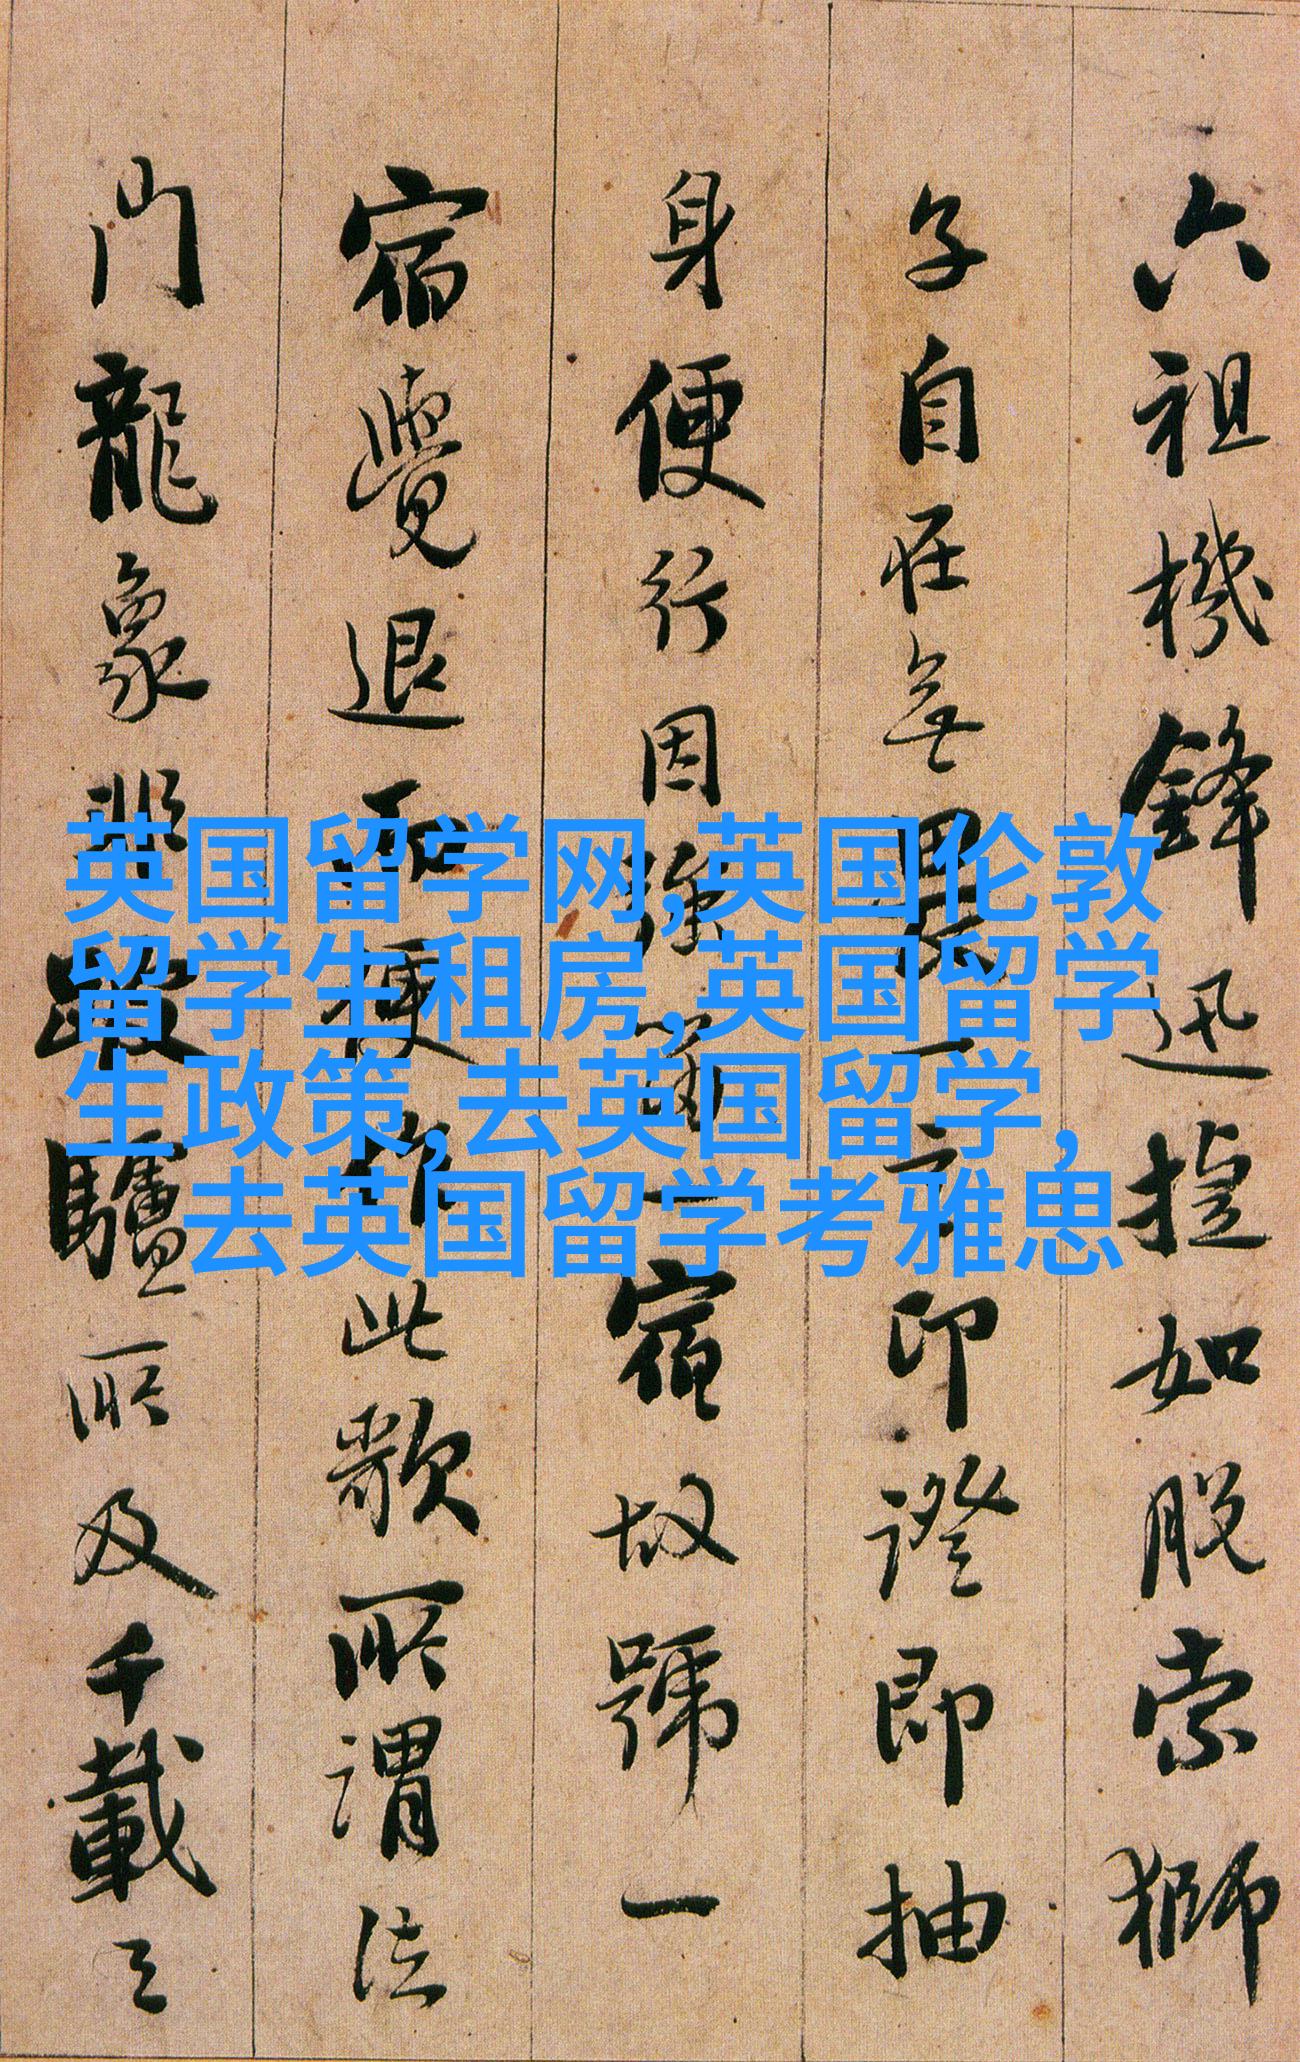 六祖機鋒迅捷如脫索獅
子自在無畏一言印證即抽
身便行因強留一宿故號一
宿覺退而撰此歌所謂法
門龍象蹴踏驢所及千載之
英国留学网,英国伦敦
留学生租房,英国留学
生政策,去英国留学,
去英国留学考雅思